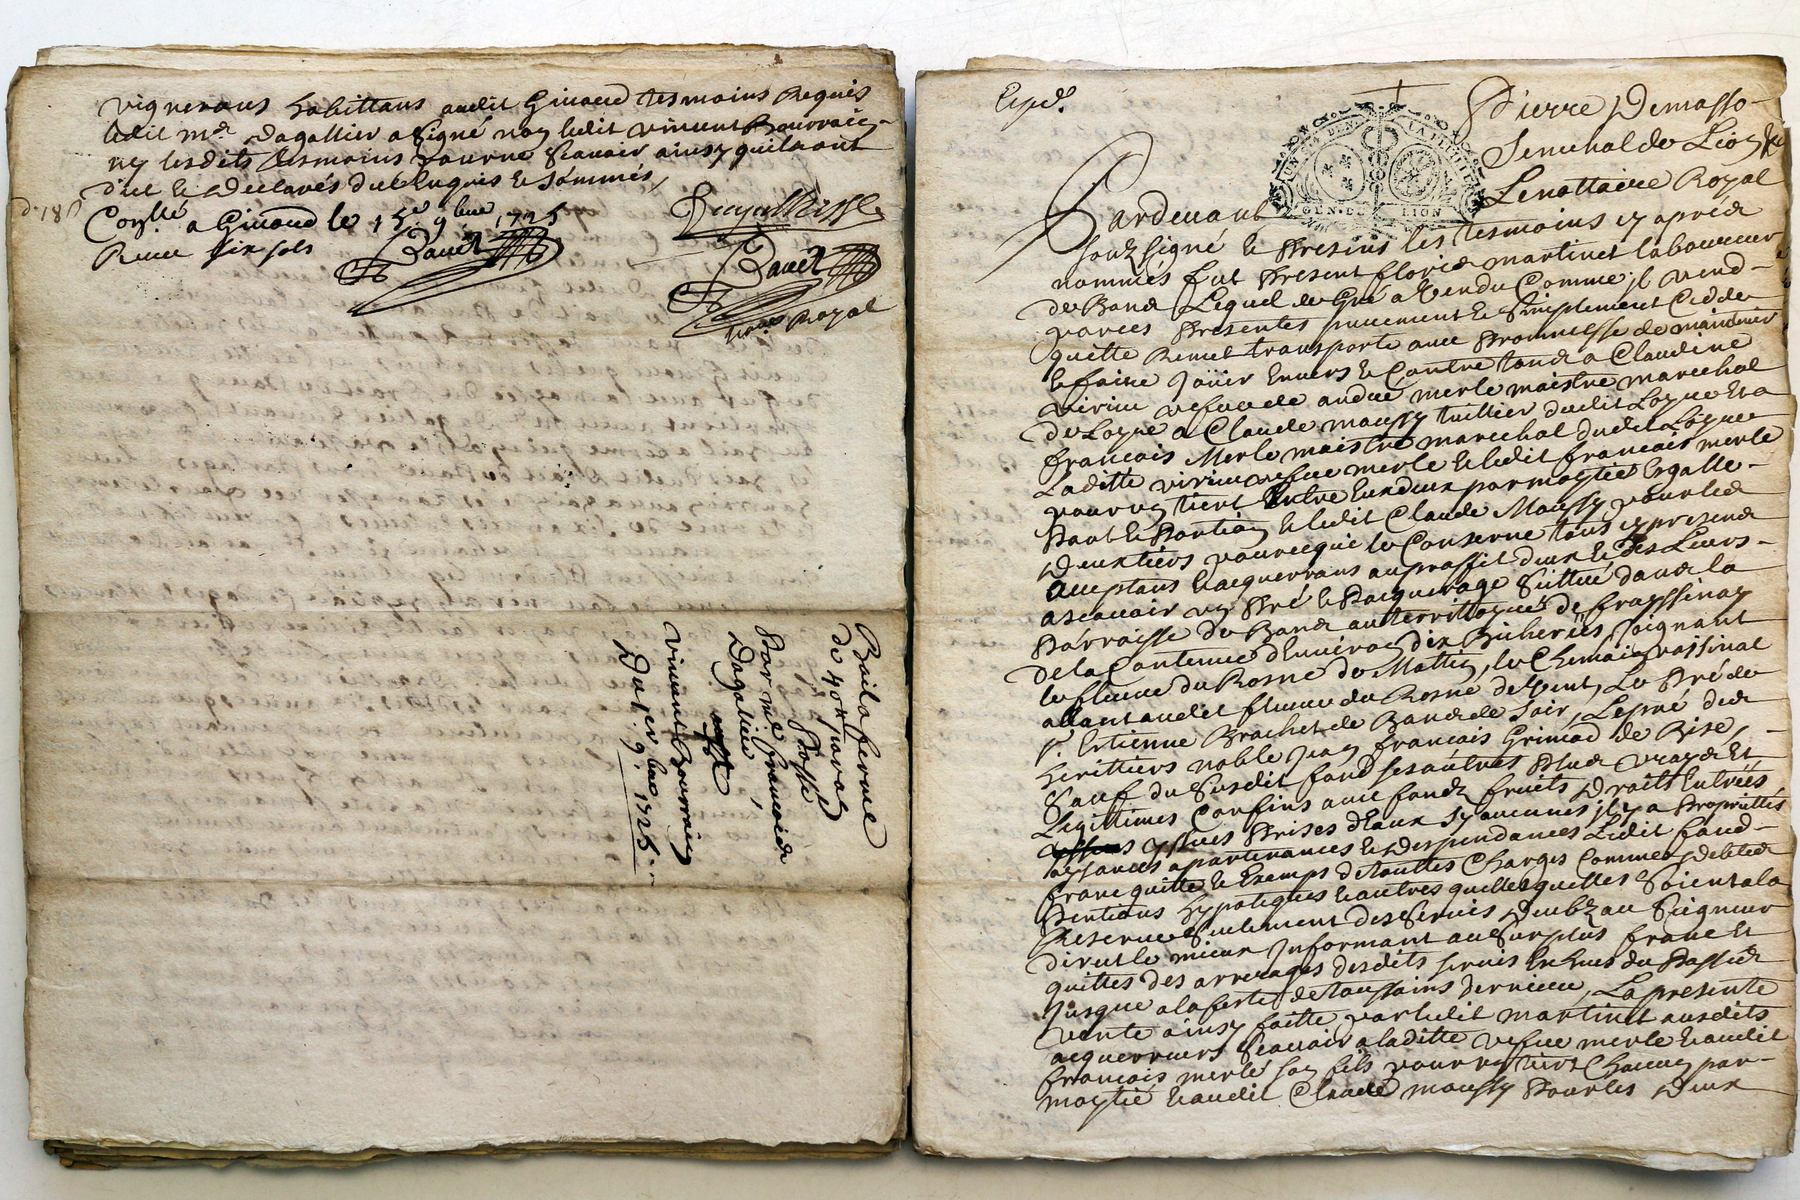 vignerons habittans audit Giuoud tesmoins Requis
ledit mr. Dagallier a signé non ledit vincent Bourrain
ny lesdits tesmoins pour ne scavoir ainsy quils ont
dit et declarés de ce enquis et sommés,
Conllé a Giuoud le 15e 9bre 1725
Receu six sols
Royal
Bail a ferme
de
passé
Par mr. francois
Dagallier
a
vincent Bourrain
Du 1er. 9bre 1725
Exped.
Pierre Demasso
Senechal de Lion
Pardevant Le nottaire Royal
GEN. DE LION
soubsigné et presens les tesmoins cy aprés
nommés fut present martinet laboureur
de Lequel de gré a vendu comme il vend
par ces presentes purement et simplement cedde
quitte Remet transporte avec promesse de maintenir
et faire Joüir envers et contre tous a Claudine
vefve de merle maistre marechal
de Loyne a Claude moussy tuillier dudit Loyne et a
francois Merle maistre marechal dudit Loyne
Laditte vefve merle et ledit francois merle
pour un tiers Entre Eux deux par moytié Egalle
Part et Portion et ledit Claude Moussy pour les
Deux tiers pour ce qui le Conserne tous cy presens
acceptans et acquerrans au proffit d'eux et des Leurs
ascavoir un Pré et Pasquerage Scittué dans la
Parroisse de au territtoire de
de la Contenue d'Environ dix Bicherées Joignant
le fleuve du Rosne de Mattin, le Chemin
allant audit fleuve du Rosne de vent, Le Pré de
sr. Estienne Brachet de de soir, Le pré des
herittiers noble Jean francois Grimod de Bise,
Sauf du susdit fond ses autres plus vrays et
Legittimes Confins avec fonds fruits Droits Entrées
yssues Prises d'Eaux sy aucunes il y a Proprietés
aysances apartenances et despendances Ledit fond
franc quitte et Exempt de touttes Charges Comme debtes
Pentions hypoteques et autres quelles quelles soient a la
Reserve seulement des servis deubz au Seigneur
direct le mieux Informant au surplus franc et
quittes des arrerages desdits servis Echeus du Passé
Jusque a la feste de toussains derniere, La presente
vente ainsy faitte par ledit martinet ausdits
acquerreurs scavoir a laditte vefve merle et audit
francois merle son fils pour un tiers Chacun par
moytié et audit Claude moussy Pour les Deux